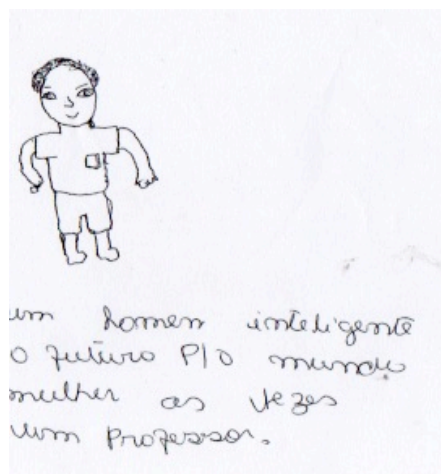 um homem inteligente
o futuro P/o mundo
mulher as vezes
um Professor.